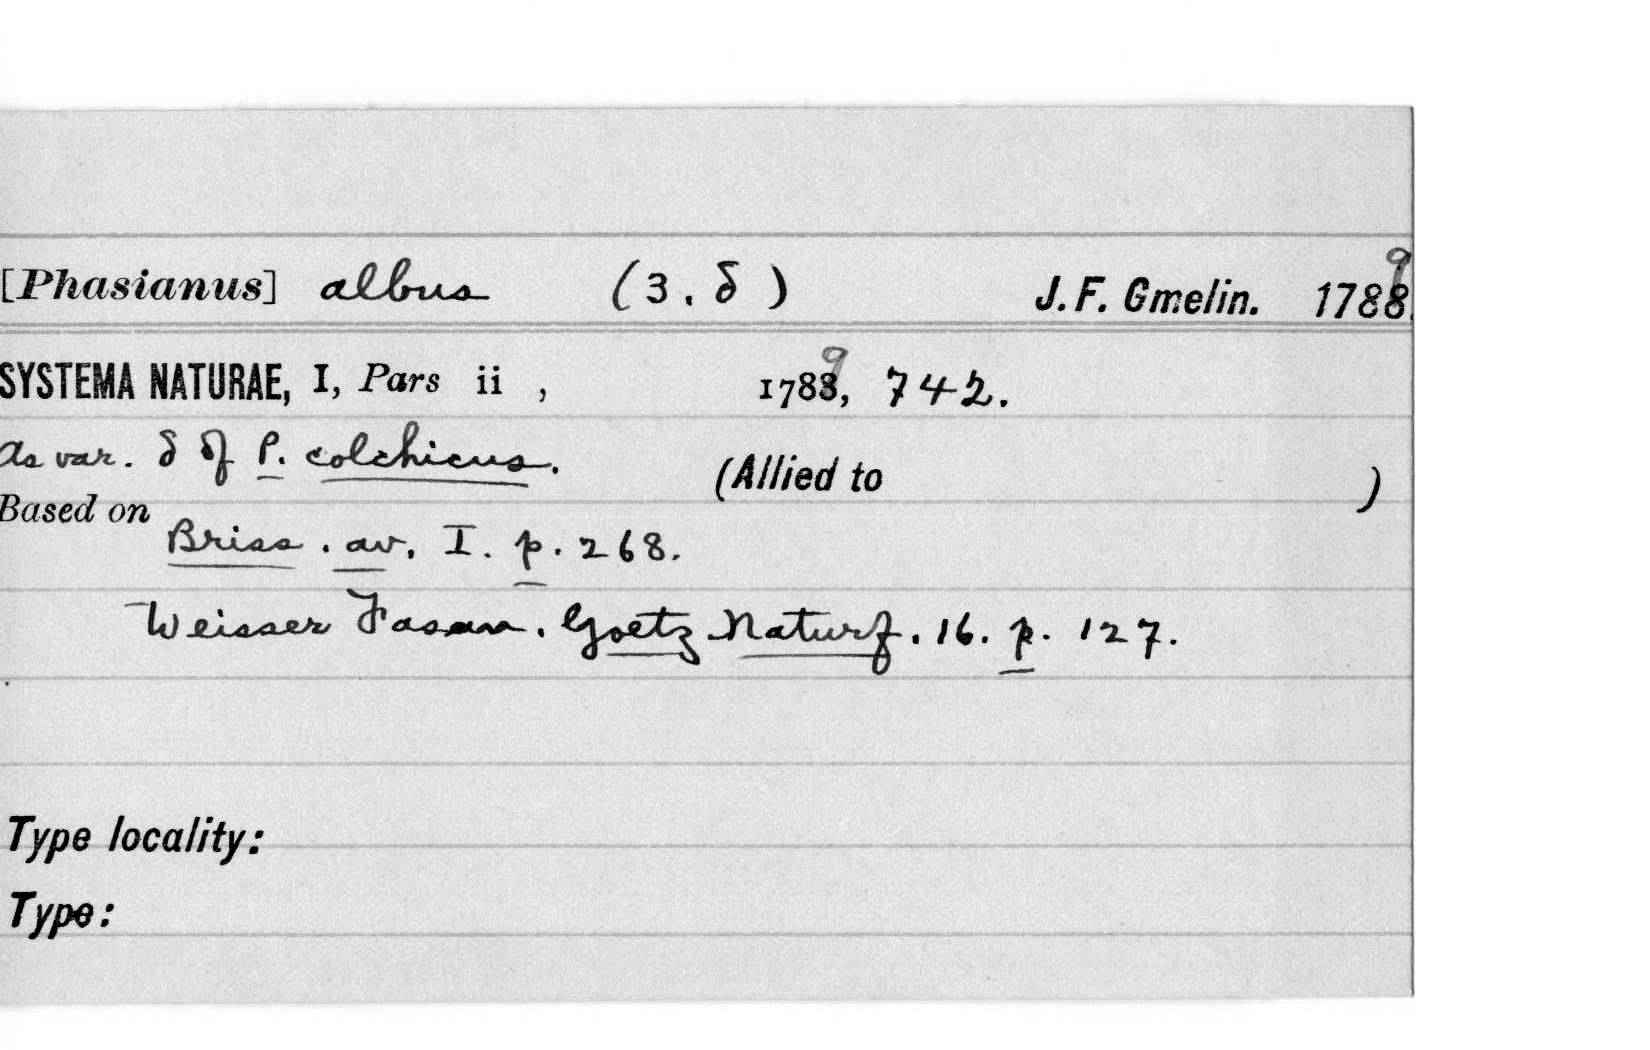 [Phasianus] albus (3. δ) J. F. Gmelin. 1788. 9
SYSTEMA NATURAE, I, Pars ii , 1788, 9 742.
As var. δ of P. colchicus. (Allied to )
Based on
Briss. av. I. p. 268.
Weisser Fasan. Goetz Naturf. 16. p. 127.
Type locality:
Type: